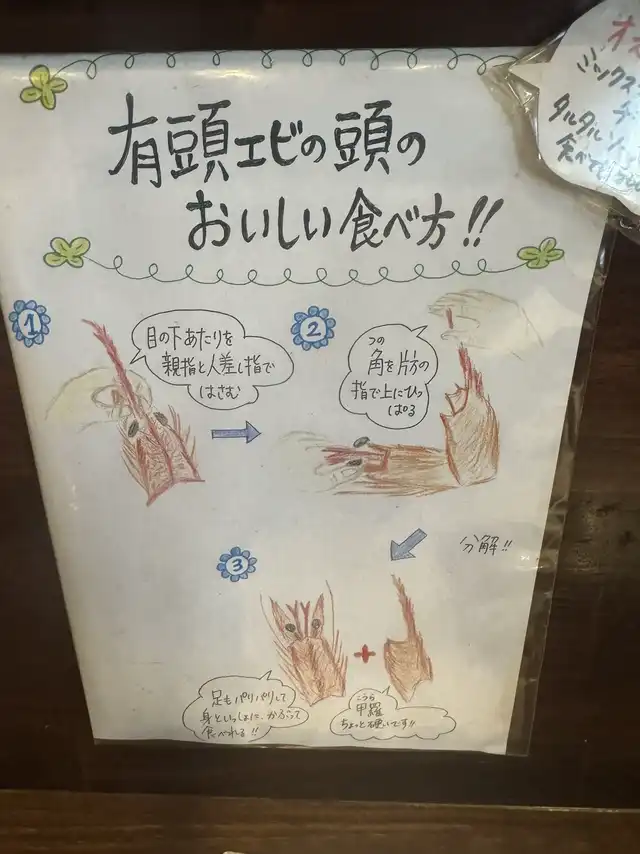 有頭エビの頭の
おいしい食べ方!!
1
目の下あたりを
親指と人差し指で
はさむ
2
つの
角を片方の
指で上にひっ
ぱる
分解!!
3
足もパリパリして
身といっしょに、かぶって
食べれる!!
こうら
甲羅
ちょっと硬いです!!
ミックス
タルタルソ
食べて